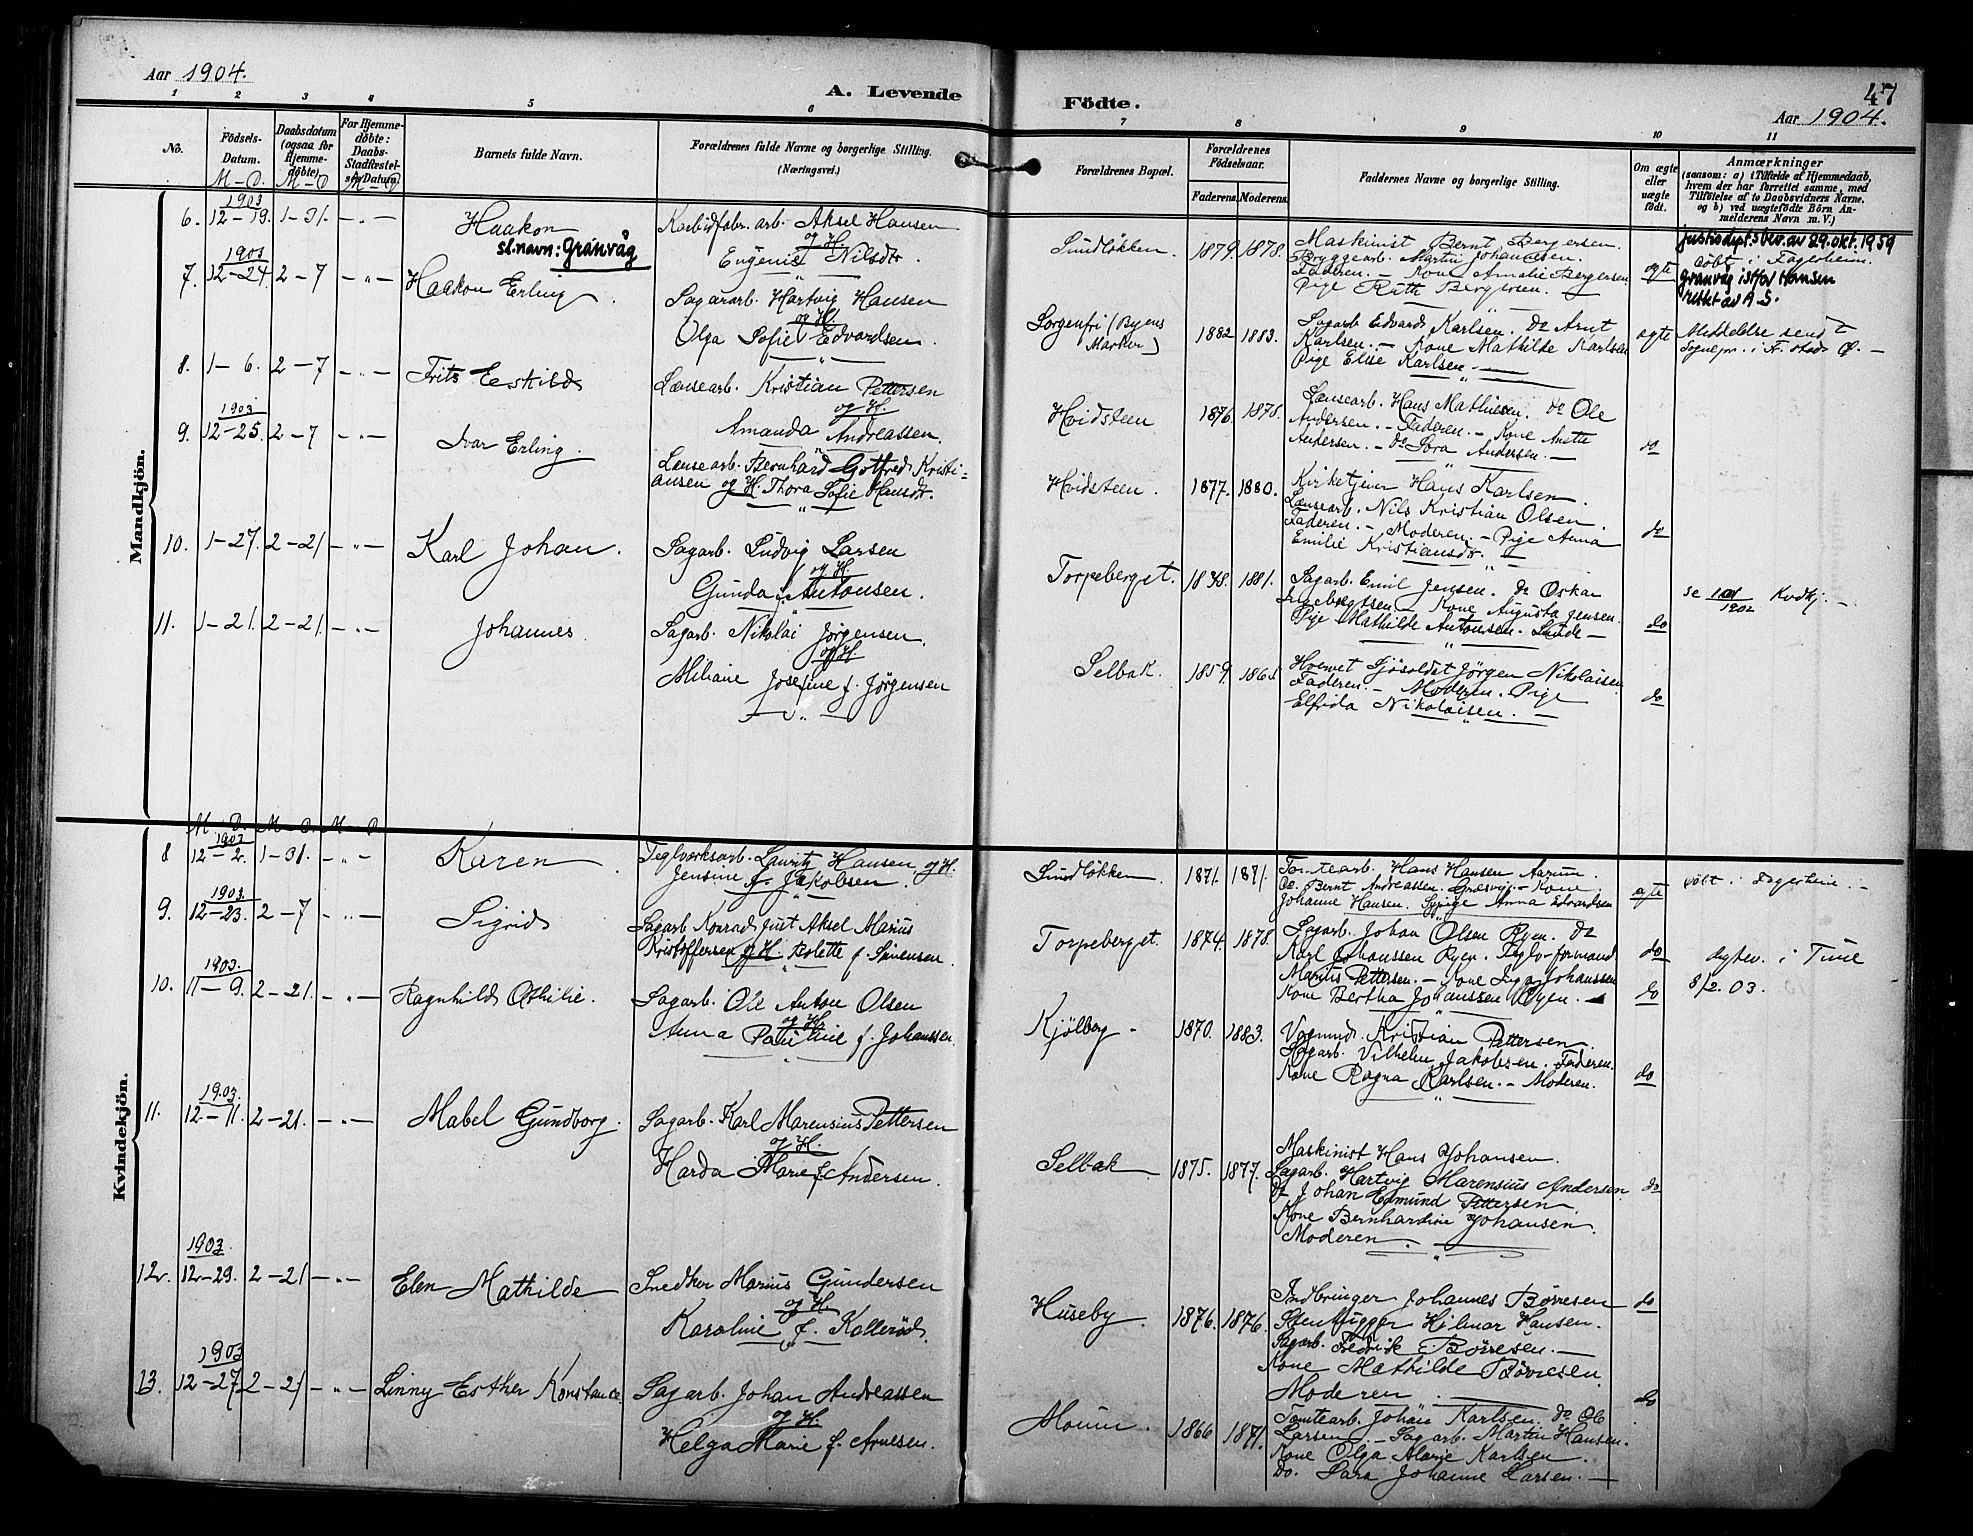 Aar 1904.
A. Levende
Födte.
47
Aar 1904.
1 2 3 4 5 6 7 8 9 10 11
No.
Födsels-
Datum.
M – D.
Daabsdatum
(ogsaa for
Hjemme-
döbte)
M – D
For Hjemme-
döbte:
Daabs-
Stadfæstel-
sen Datum.
M – D.
Barnets fulde Navn.
Forældrenes fulde Navne og borgerlige Stilling.
(Næringsvei.)
Forældrenes Bopæl.
Forældrenes
Födselsaar.
Faderens. Moderens.
Faddernes Navne og borgerlige Stilling.
Om ægte
eller
uægte
födt.
Anmærkninger
(saasom: a) i Tilfælde af Hjemmedaab,
hvem der har forrettet samme, med
Tilföielse af to Daabsvidners Navne,
og b) ved uægtefödte Börn An-
melderens Navn m. V.)
Mandkjön.
1903
6. 12–19. 1–31. – " – Haakon
Karbidfabr. arb. Aksel Hansen
og H.
Eugenie Nilsdtr.
Sundløkken 1879. 1878.
Maskinist Bernt Bergersen.
Bryggearb. Martin Johannesen
Faderen. – Kone Amalie Bergersen
Pige Ruth Bergersen. –
ægte
döbt i Fagerheim.
sl.navn: Granvåg
Justisdept.s bev. av 29. okt. 1959
Granvåg istf or Hansen
rettet av A.S.
1903
7. 12–24. 2–7 – " – Haakon Erling.
Sagarb. Hartvig Hansen
og H.
Olga Sofie Edvardsen.
Sorgenfri (Byens
Marker) 1882 1883.
Sagarb Edvard Karlsen. Do Arnt
Karlsen. – Kone Mathilde Karlsen
Pige Elise Karlsen. –
ægte
Meddelelse sendt
Sognepr. i F. stad Ø. –
8. 1–6. 2–7 – " – Frits Eskild
Lænsearb. Kristian Pettersen
og H.
Amanda Andreassen.
Hvidsteen 1876. 1878.
Lænsearb. Hans Mathiesen. do Ole
Andersen. – Faderen. – Kone Anette
Andersen. – Do Sora Andersen. –
do
1903
9. 12–25. 2–7 – " – Ivar Erling.
Lænsearb. Bernhard Gotfred Kristi-
ansen og H. Thora Sofie Hansdtr.
Hvidsteen. 1877. 1880.
Kirketjener Hans Karlsen.
Lænsearb. Nils Kristian Olsen.
Faderen. – Moderen. – Pige Anna
Emilie Kristiansdtr. –
do
10. 1–27. 2–21 – " – Karl Johan.
Sagarb. Ludvig Larsen
og H.
Gunda f. Antonsen.
Torpeberget. 1878. 1881.
Sagarb. Emil Jensen. Do Oskar
Ingebregtsen – Kone Augusta Jensen.
Pige Mathilde Antonsen. Lunde –
do
se 1902 Kvdkj. –
11. 1–21. 2–21. – " – Johannes
Sagarb. Nikolai Jørgensen.
og H.
Miliane Josefine f. Jørgensen
Selbak. 1859. 1865
Hvervet Sjøsoldat Jørgen Nikolaisen
Faderen. – Moderen. Pige
Elfrida Nikolaisen. –
do
Kvindekjön.
M. D. M – D. M – D
1903
8 12–2. 1–31. – " – Karen
Teglværksarb. Lauritz Hansen og H.
Jensine f. Jakobsen.
Sundløkken. 1871. 1871.
Tomtearb. Hans Hansen Aarum.
Do. Bernt Andreassen. Græsvig. – Kone
Johanne Hansen. Sypige Anna Edvardsen
ægte
döbt i Fagerheim. –
1903
9. 12–23. 2–7 – " – Sigrid
Sagarb Konrad Just Aksel Marius
Kristoffersen og H. Bolette f. Simensen
Torpeberget. 1874. 1878.
Sagarb. Johan Olsen Ryen. Do
Karl Johanssen Ryen. Teglv-formand
Marius Pettersen. – Kone Inga Johanssen
Kone Bertha Johanssen Ryen. –
do
Ægtev. i Tune
8/2. 03.
1903.
10. 11–9. 2–21. – " – Ragnhild Othilie.
Sagarb. Ole Anton Olsen
og H.
Anna Pauline f. Johanssen.
Kjølberg – 1870. 1883.
Vognmd. Kristian Pettersen.
Sagarb. Vilhelm Jakobsen. Faderen.
Kone Ragna Karlsen. – Moderen.
do
do
1903.
11. 12–11. 2–21. – " – Mabel Gundborg.
Sagarb. Karl Marensius Pettersen
og H.
Harda Marie f. Andersen.
Selbak 1875. 1877.
Maskinist Hans Johansen.
Sagarb. Hartvig Marensius Andersen
Do Johan Edmund Pettersen
Kone Bernhardine Johansen
Moderen. –
do
1903.
12. 12–29. 2–21 – " – Elen Mathilde
Snedker Marius Gundersen
og H
Karoline f. Kallerød.
Huseby. 1876. 1876.
Indbringer Johannes Børresen
Stenhugger Hilmar Hansen.
Sagarb. Fredrik Børresen. –
Kone Mathilde Børresen.
Moderen. –
do
1903
13. 12–27 2–21 – " – Linny Esther Konstance.
Sagarb. Johan Andreassen
og H.
Helga Marie f. Arnesen.
Moum. 1866 1871.
Tomtearb. Johan Karlsen. Do Ole
Larsen. – Sagarb. Martin Hansen.
Kone Olga Marie Karlsen.
Do. Sara Johanne Larsen. –
do